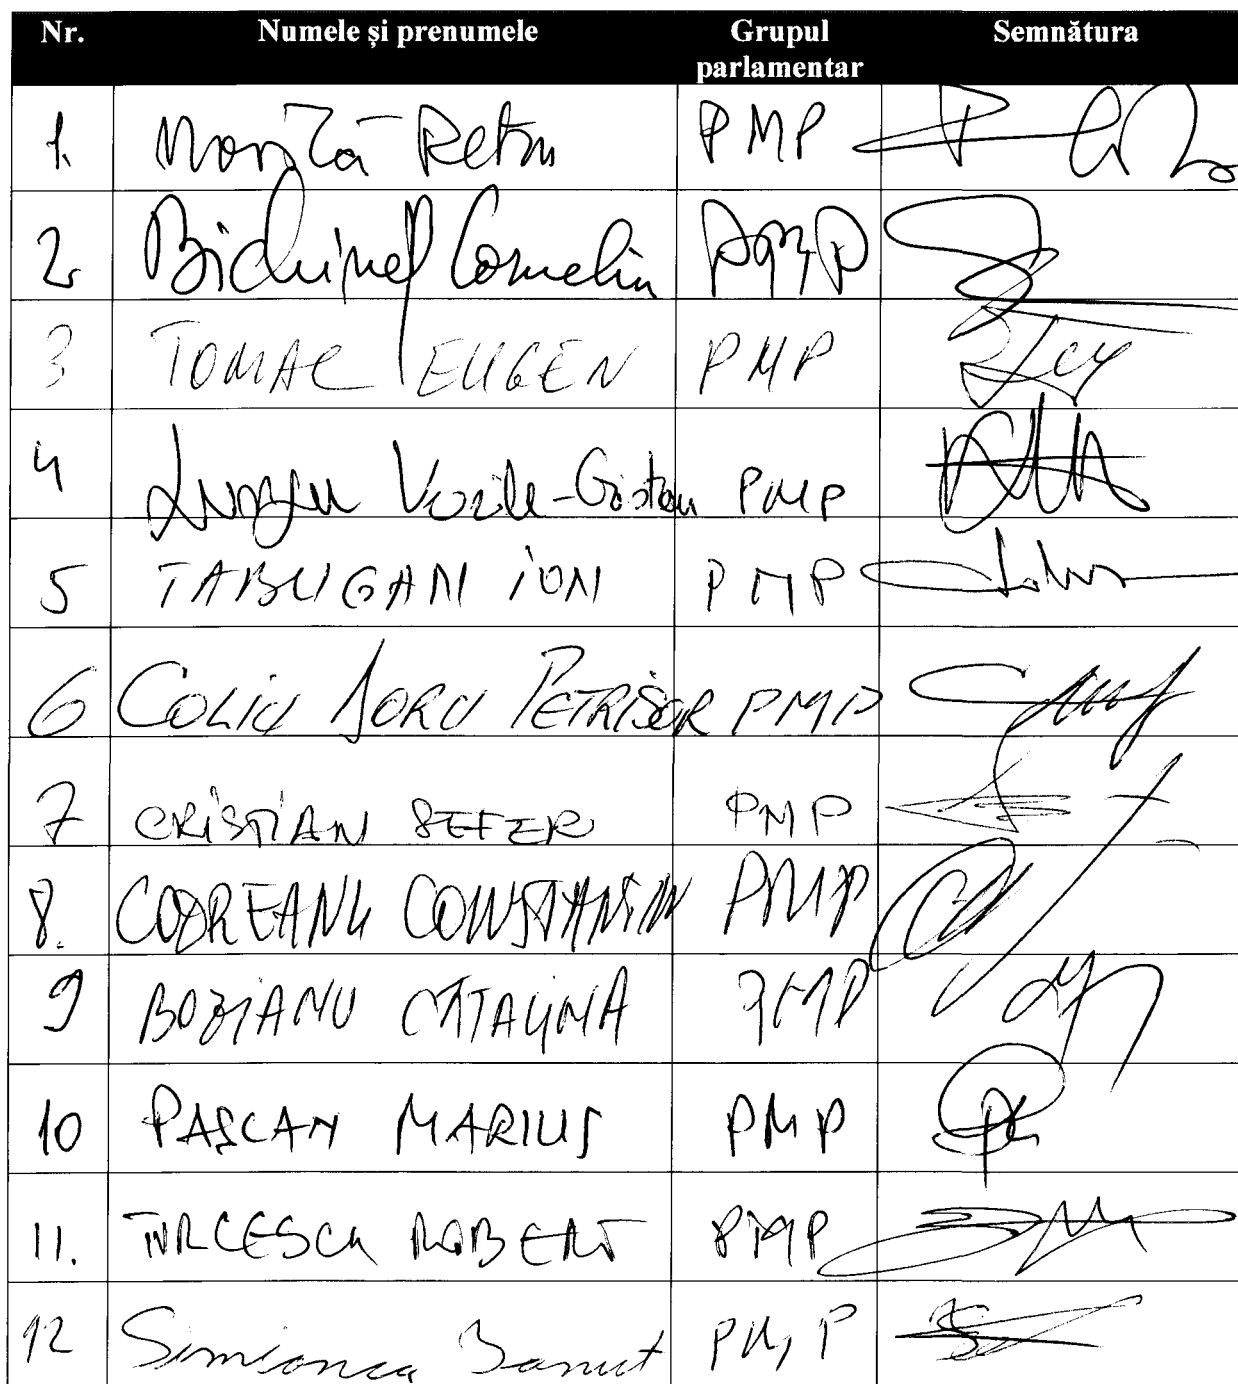 Nr. Numele și prenumele Grupul parlamentar Semnătura
1. Movilă Petru PMP
2. Bichineț Corneliu PMP
3 TOMAC EUGEN PMP
4 Lungu Vasile-Cristian PMP
5 TABUGAN ION PMP
6 COLIU DORU PETRIȘOR PMP
7 CRISTIAN SEFER PMP
8. CODREANU CONSTANTIN PMP
9 BOZIANU CATALINA PMP
10 PASCAN MARIUS PMP
11. TURCESCU ROBERT PMP
12 Simionca Ionut PMP